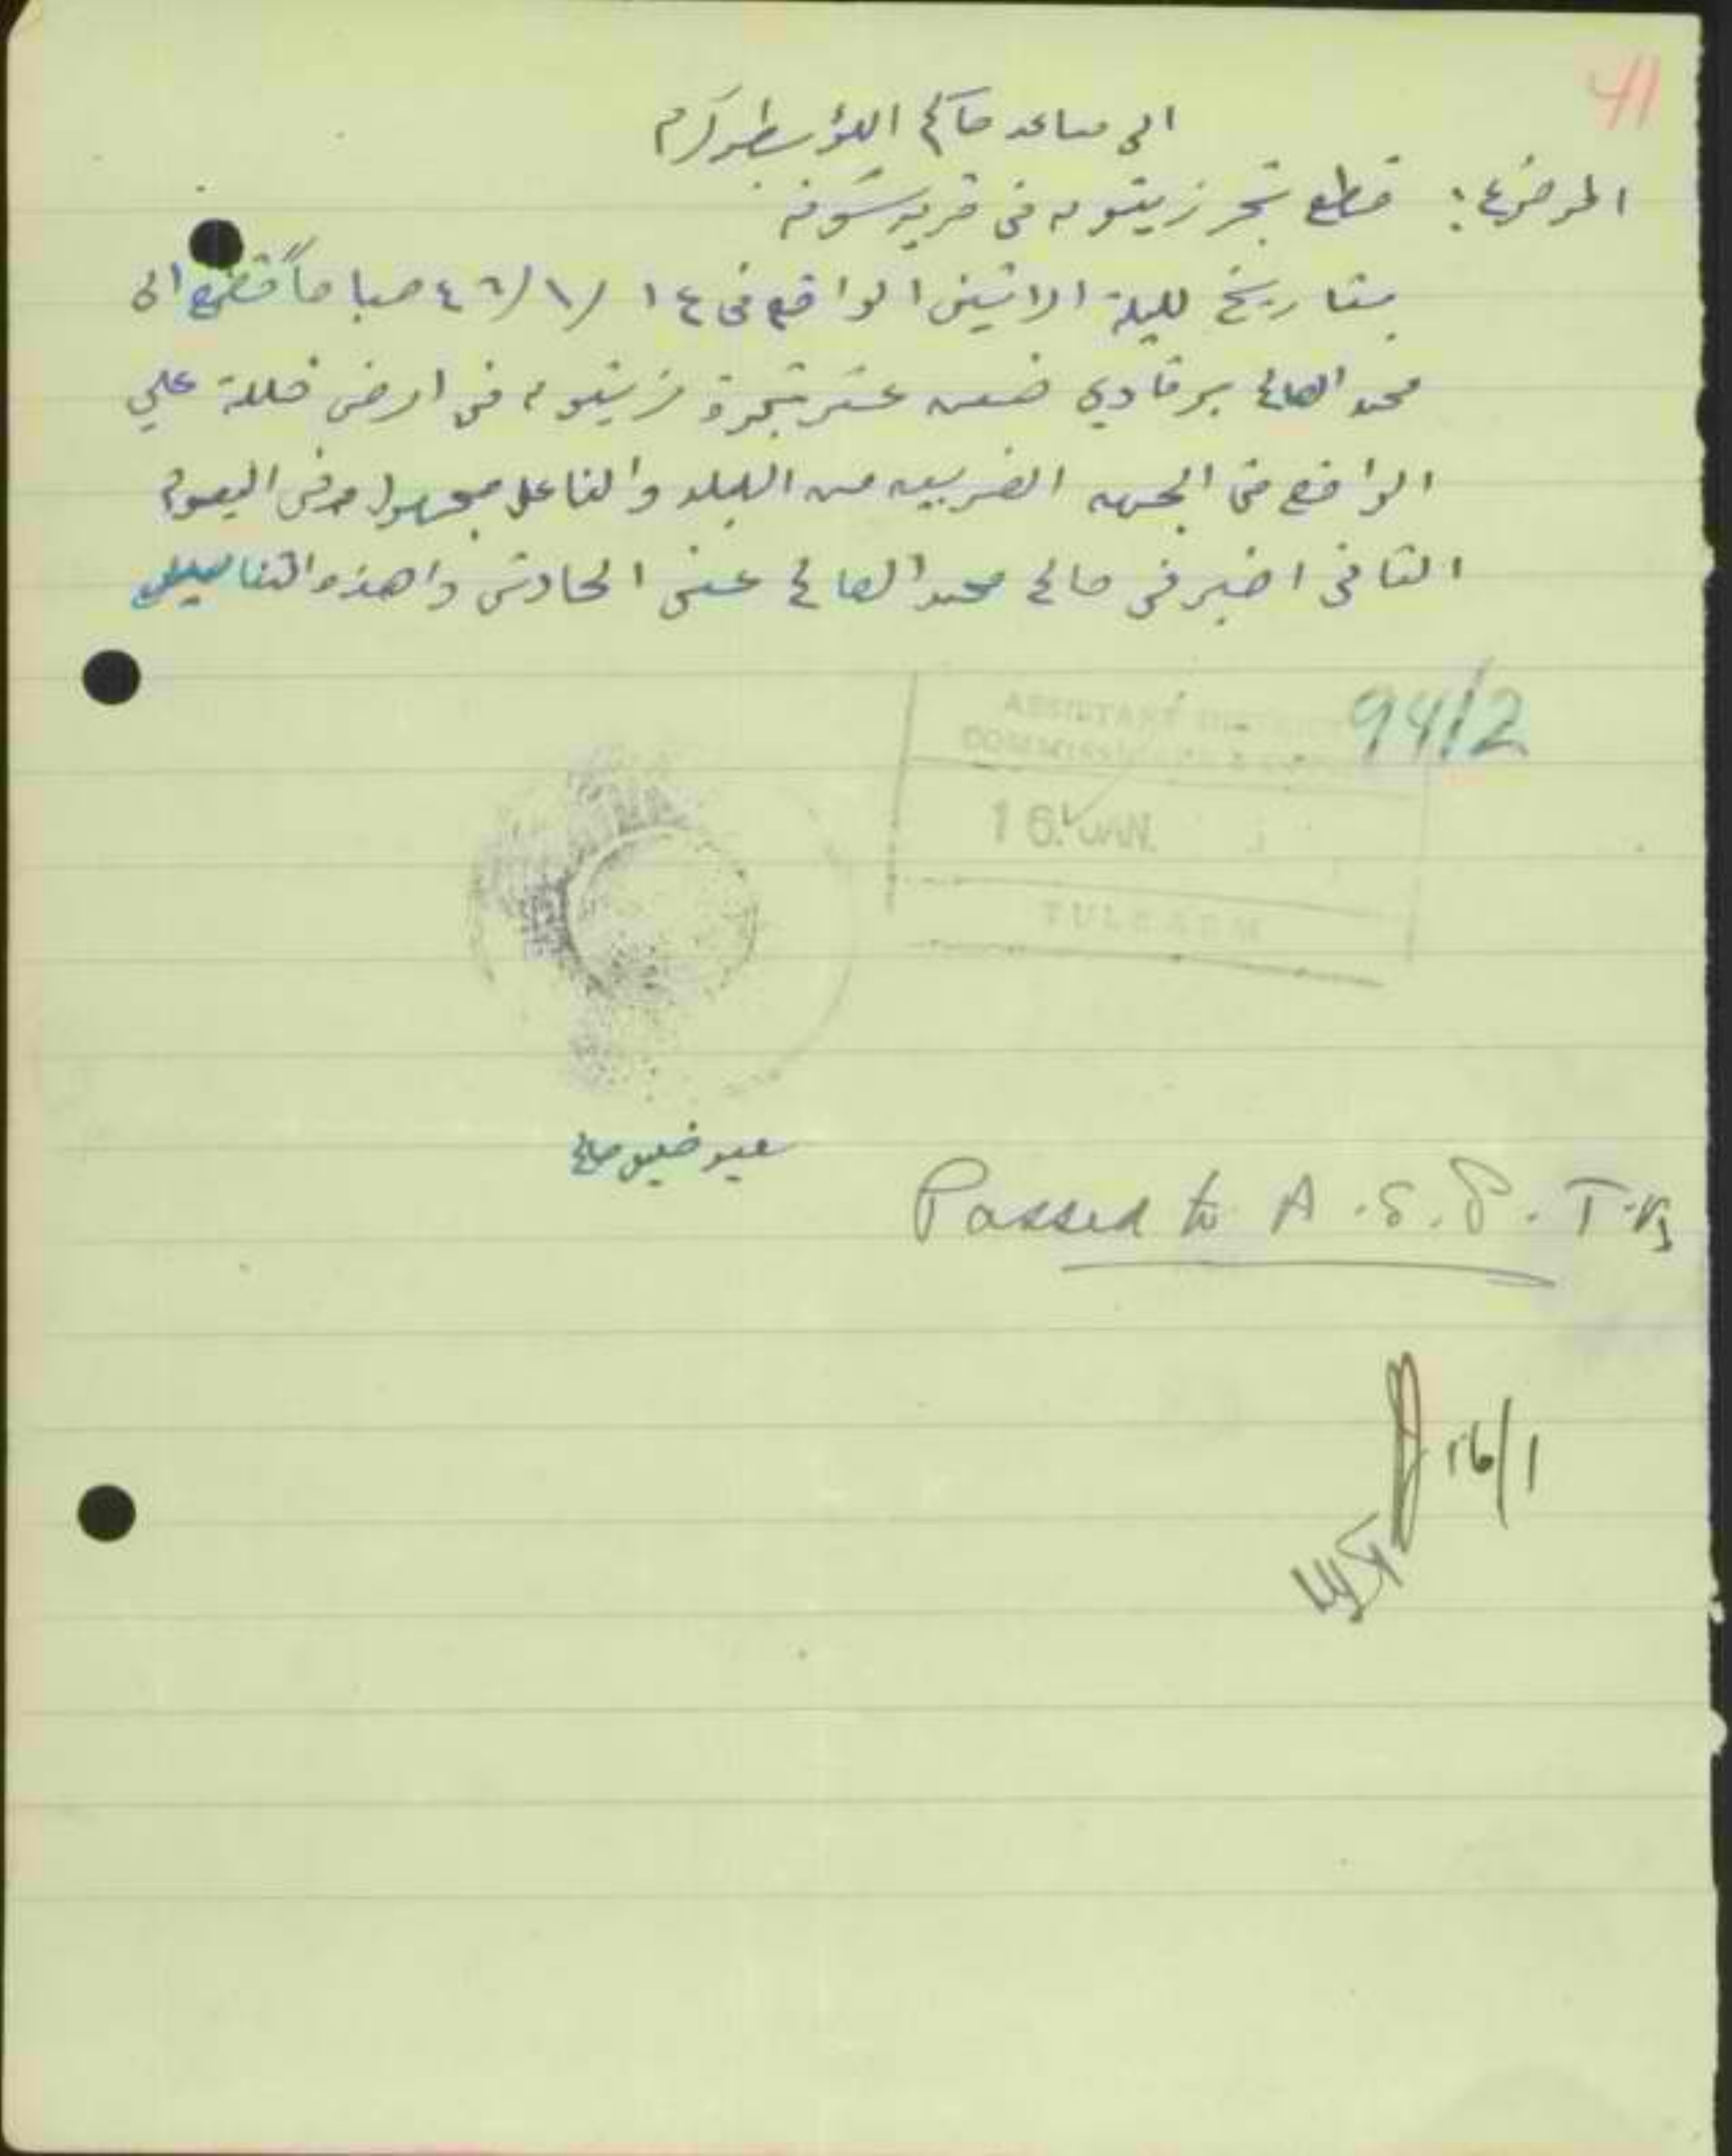 41
الى مساعد حاكم اللؤ بطولكرم
الموضوع: قطع شجر زيتون في قرية شوفه
بتاريخ ليلة الاثنين الواقع في ١٤ /١/ ٤٦ صباحاً قطع الى
محمد الصالح برقاوي خمسه عشر شجرة زيتون في ارض خلة علي
الواقع في الجهه الغربيه من البلد والفاعل مجهول وفي اليوم
الثاني اخبرني صالح محمد الصالح عن الحادث وهذه التفاصيل
94/2
ASSISTANT DISTRICT
COMMISSIONER'S OFFICE
16. JAN.
TULKARM
صالح
Passed to A.S.P. T-
16/1